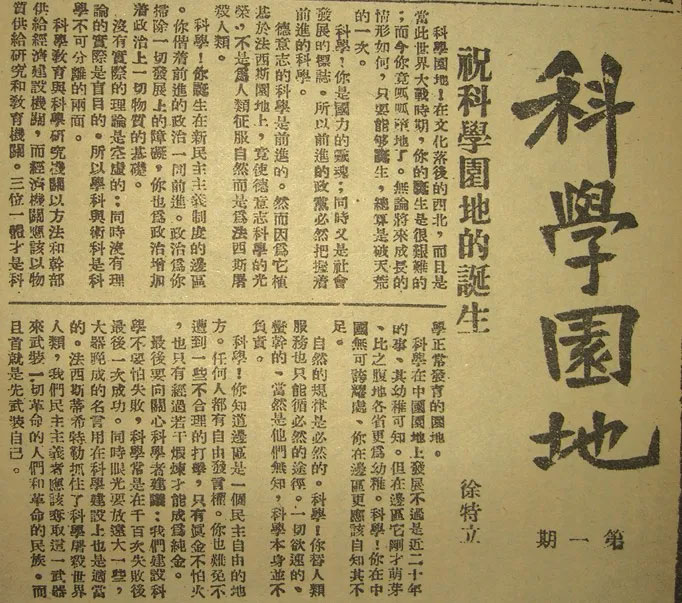 科學園地
第一期
祝科學園地的誕生
徐特立
科學園地!在文化落後的西北,而且是
當此世界大戰時期,你的誕生是很艱難的
;而今你竟呱呱墮地了。無論將來成長的
情形如何,只要能够誕生,總算是破天荒
的一次。
科學!你是國力的靈魂;同時又是社會
發展的標誌。所以前進的政黨必然把握着
前進的科學。
德意志的科學是前進的。然而因爲它植
基於法西斯園地上,竟使德意志科學的光
榮,不是爲人類征服自然而是爲法西斯屠
殺人類。
科學!你誕生在新民主主義制度的邊區
。你偕着前進的政治一同前進。政治爲你
掃除一切發展上的障礙,你也爲政治增加
着政治上一切物質的基礎。
沒有實際的理論是空虛的;同時沒有理
論的實際是盲目的。所以學科與術科是科
學不可分離的兩面。
科學教育與科學研究機關以方法和幹部
供給經濟建設機關,而經濟機關應該以物
質供給研究和教育機關。三位一體才是科
學正常發育的園地。
科學在中國園地上發展不過是近二十年
的事、其幼稚可知。但在邊區它剛才萌芽
、比之腹地各省更爲幼稚。科學!你在中
國無可誇耀處、你在邊區更應該自知其不
足。
自然的規律是必然的。科學!你替人類
服務也只能循必然的途徑。一切欲速的、
蠻幹的、當然是他們無知,科學本身並不
負責。
科學!你知道邊區是一個民主自由的地
方。任何人都有自由發言權。你也難免不
遭到一些不合理的打擊,只有真金不怕火
,也只有經過若干煆煉才能成爲純金。
最後要向關心科學者建議:我們建設科
學不要怕失敗,科學常是在千百次失敗後
最後一次成功。同時眼光要放遠大一些,
大器晚成的名言用在科學建設上也是適當
的。法西斯蒂希特勒抓住了科學屠殺世界
人類,我們民主主義者應該奪取這一武器
來武裝一切革命的人們和革命的民族。而
且首就是先武裝自己。